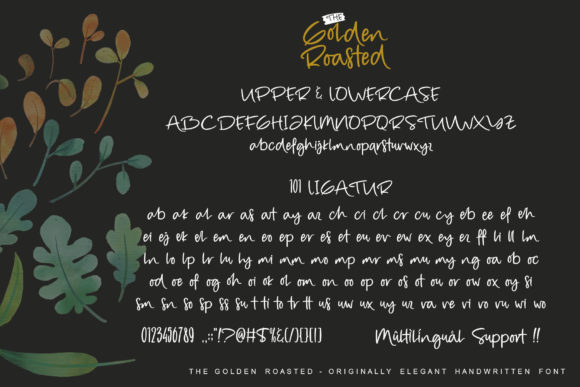 THE
Golden
Roasted
UPPER & LOWERCASE
ABCDEFGHIJKLMNOPQRSTUVWXYZ
abcdefghijklmnopqrstuvwxyz
101 LIGATUR
ab ak al ar as at ay az ch ci cl cr cu cy eb ee ef eh
ei ej ek el em en eo ep er es et eu ev ew ex ey ez ff li ll lm
ln lo lp lr lu ly mi mm mo mp mr ms mu my ng oa ob oc
od oe of og oh oi ok ol om on oo op or os ot ou or ow ox oy si
sm sn so sp ss su t ti to tr tt us uw ux uy uz va ve vi vo vu wi wo
0123456789 .,:;"!?@#$%&(/){}[]
Múltilíngüál Support !!
THE GOLDEN ROASTED - ORIGINALLY ELEGANT HANDWRITTEN FONT